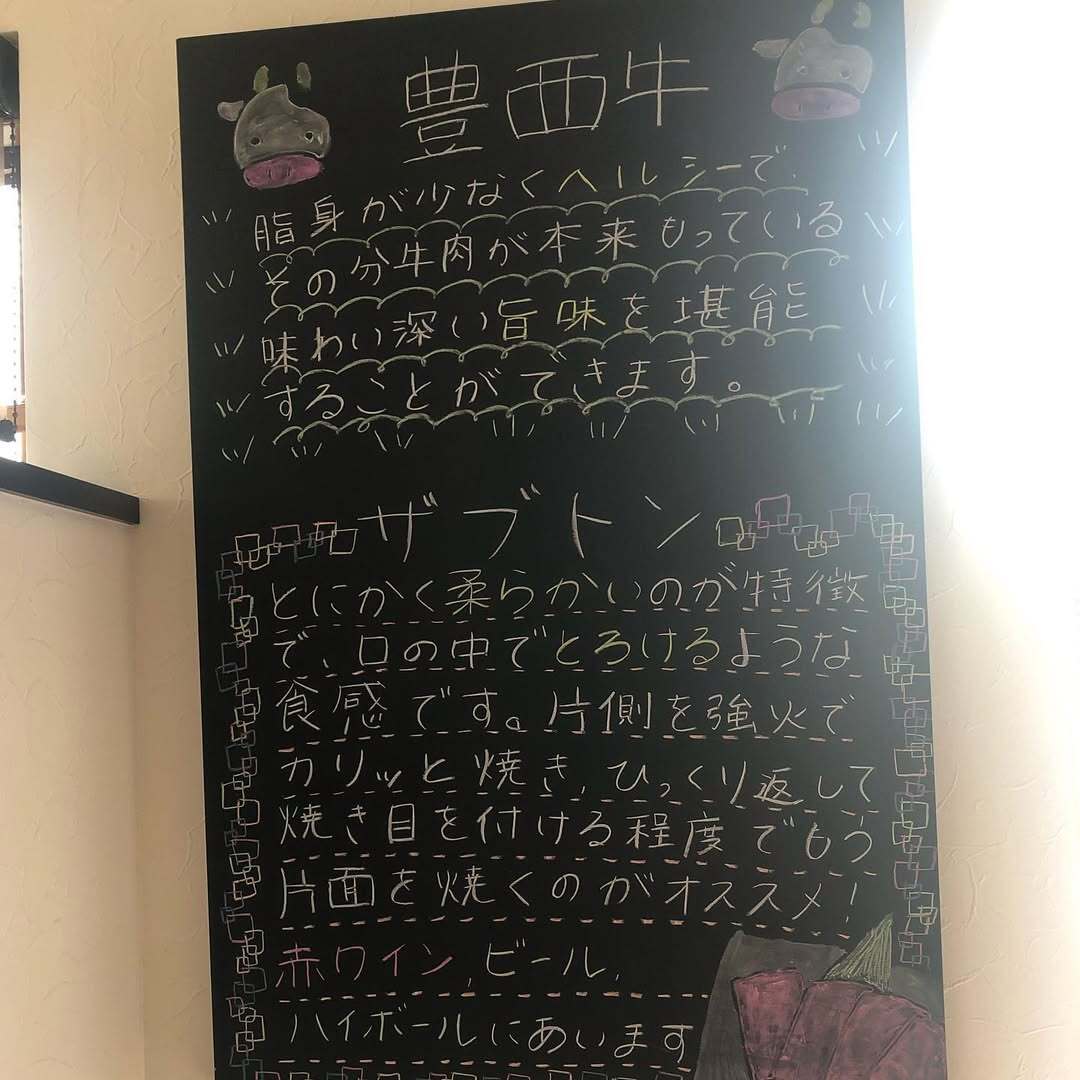 豊西牛
脂身が少なくヘルシーで、
その分牛肉が本来もっている
味わい深い旨味を堪能
することができます。
ザブトン
とにかく柔らかいのが特徴
で、口の中でとろけるような
食感です。片側を強火で
カリッと焼き、ひっくり返して
焼き目を付ける程度でもう
片面を焼くのがオススメ!
赤ワイン、ビール、
ハイボールにあいます